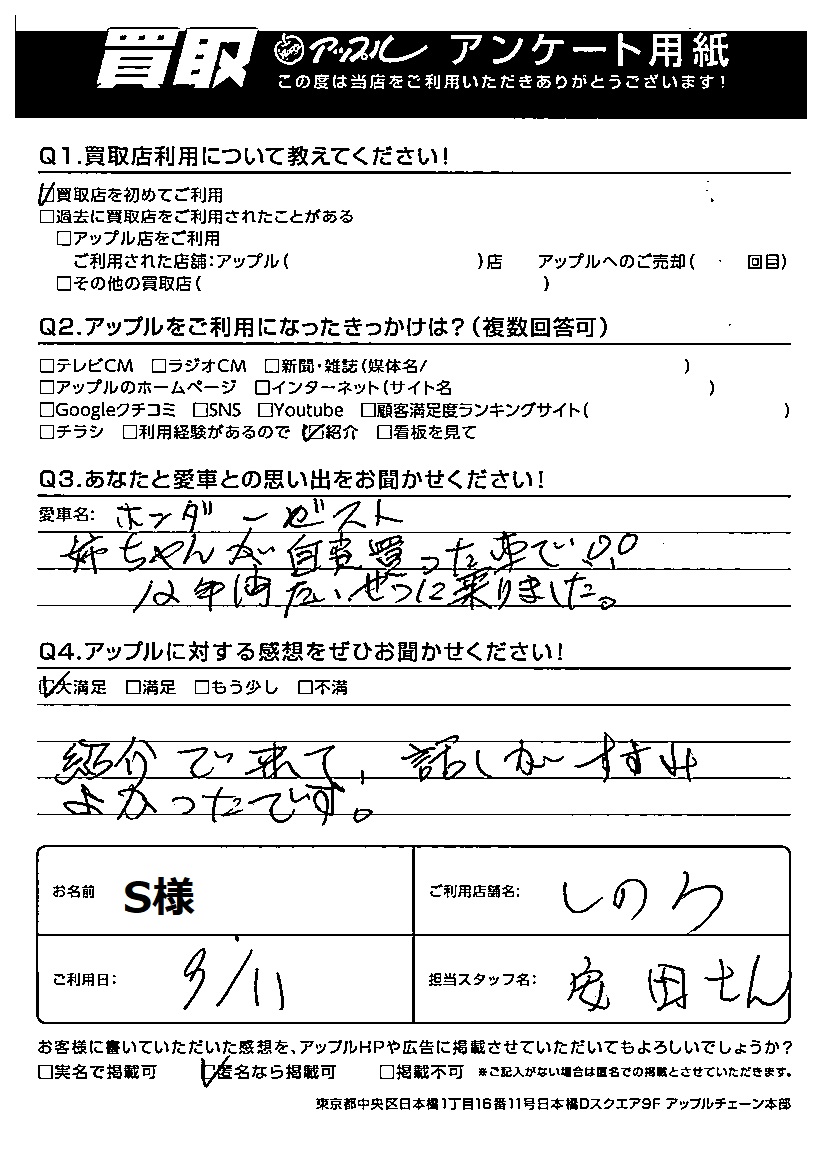 買取 アップル アンケート用紙
この度は当店をご利用いただきありがとうございます!
Q1.買取店利用について教えてください!
☑買取店を初めてご利用
□過去に買取店をご利用されたことがある
□アップル店をご利用
ご利用された店舗:アップル( )店 アップルへのご売却( 回目)
□その他の買取店( )
Q2.アップルをご利用になったきっかけは?(複数回答可)
□テレビCM □ラジオCM □新聞・雑誌(媒体名/ )
□アップルのホームページ □インターネット(サイト名 )
□Googleクチコミ □SNS □Youtube □顧客満足度ランキングサイト( )
□チラシ □利用経験があるので ☑紹介 □看板を見て
Q3.あなたと愛車との思い出をお聞かせください!
愛車名: ホンダ ーゼスト
姉ちゃんが 買った車で
12年間 に乗りました。
Q4.アップルに対する感想をぜひお聞かせください!
☑大満足 □満足 □もう少し □不満
紹介で来て、話しがすすみ
よかったです。
お名前 S様 ご利用店舗名: しのつ
ご利用日: 9/11 担当スタッフ名: 安田さん
お客様に書いていただいた感想を、アップルHPや広告に掲載させていただいてもよろしいでしょうか?
□実名で掲載可 ☑匿名なら掲載可 □掲載不可 ※ご記入がない場合は匿名での掲載とさせていただきます。
東京都中央区日本橋1丁目16番11号日本橋Dスクエア9F アップルチェーン本部